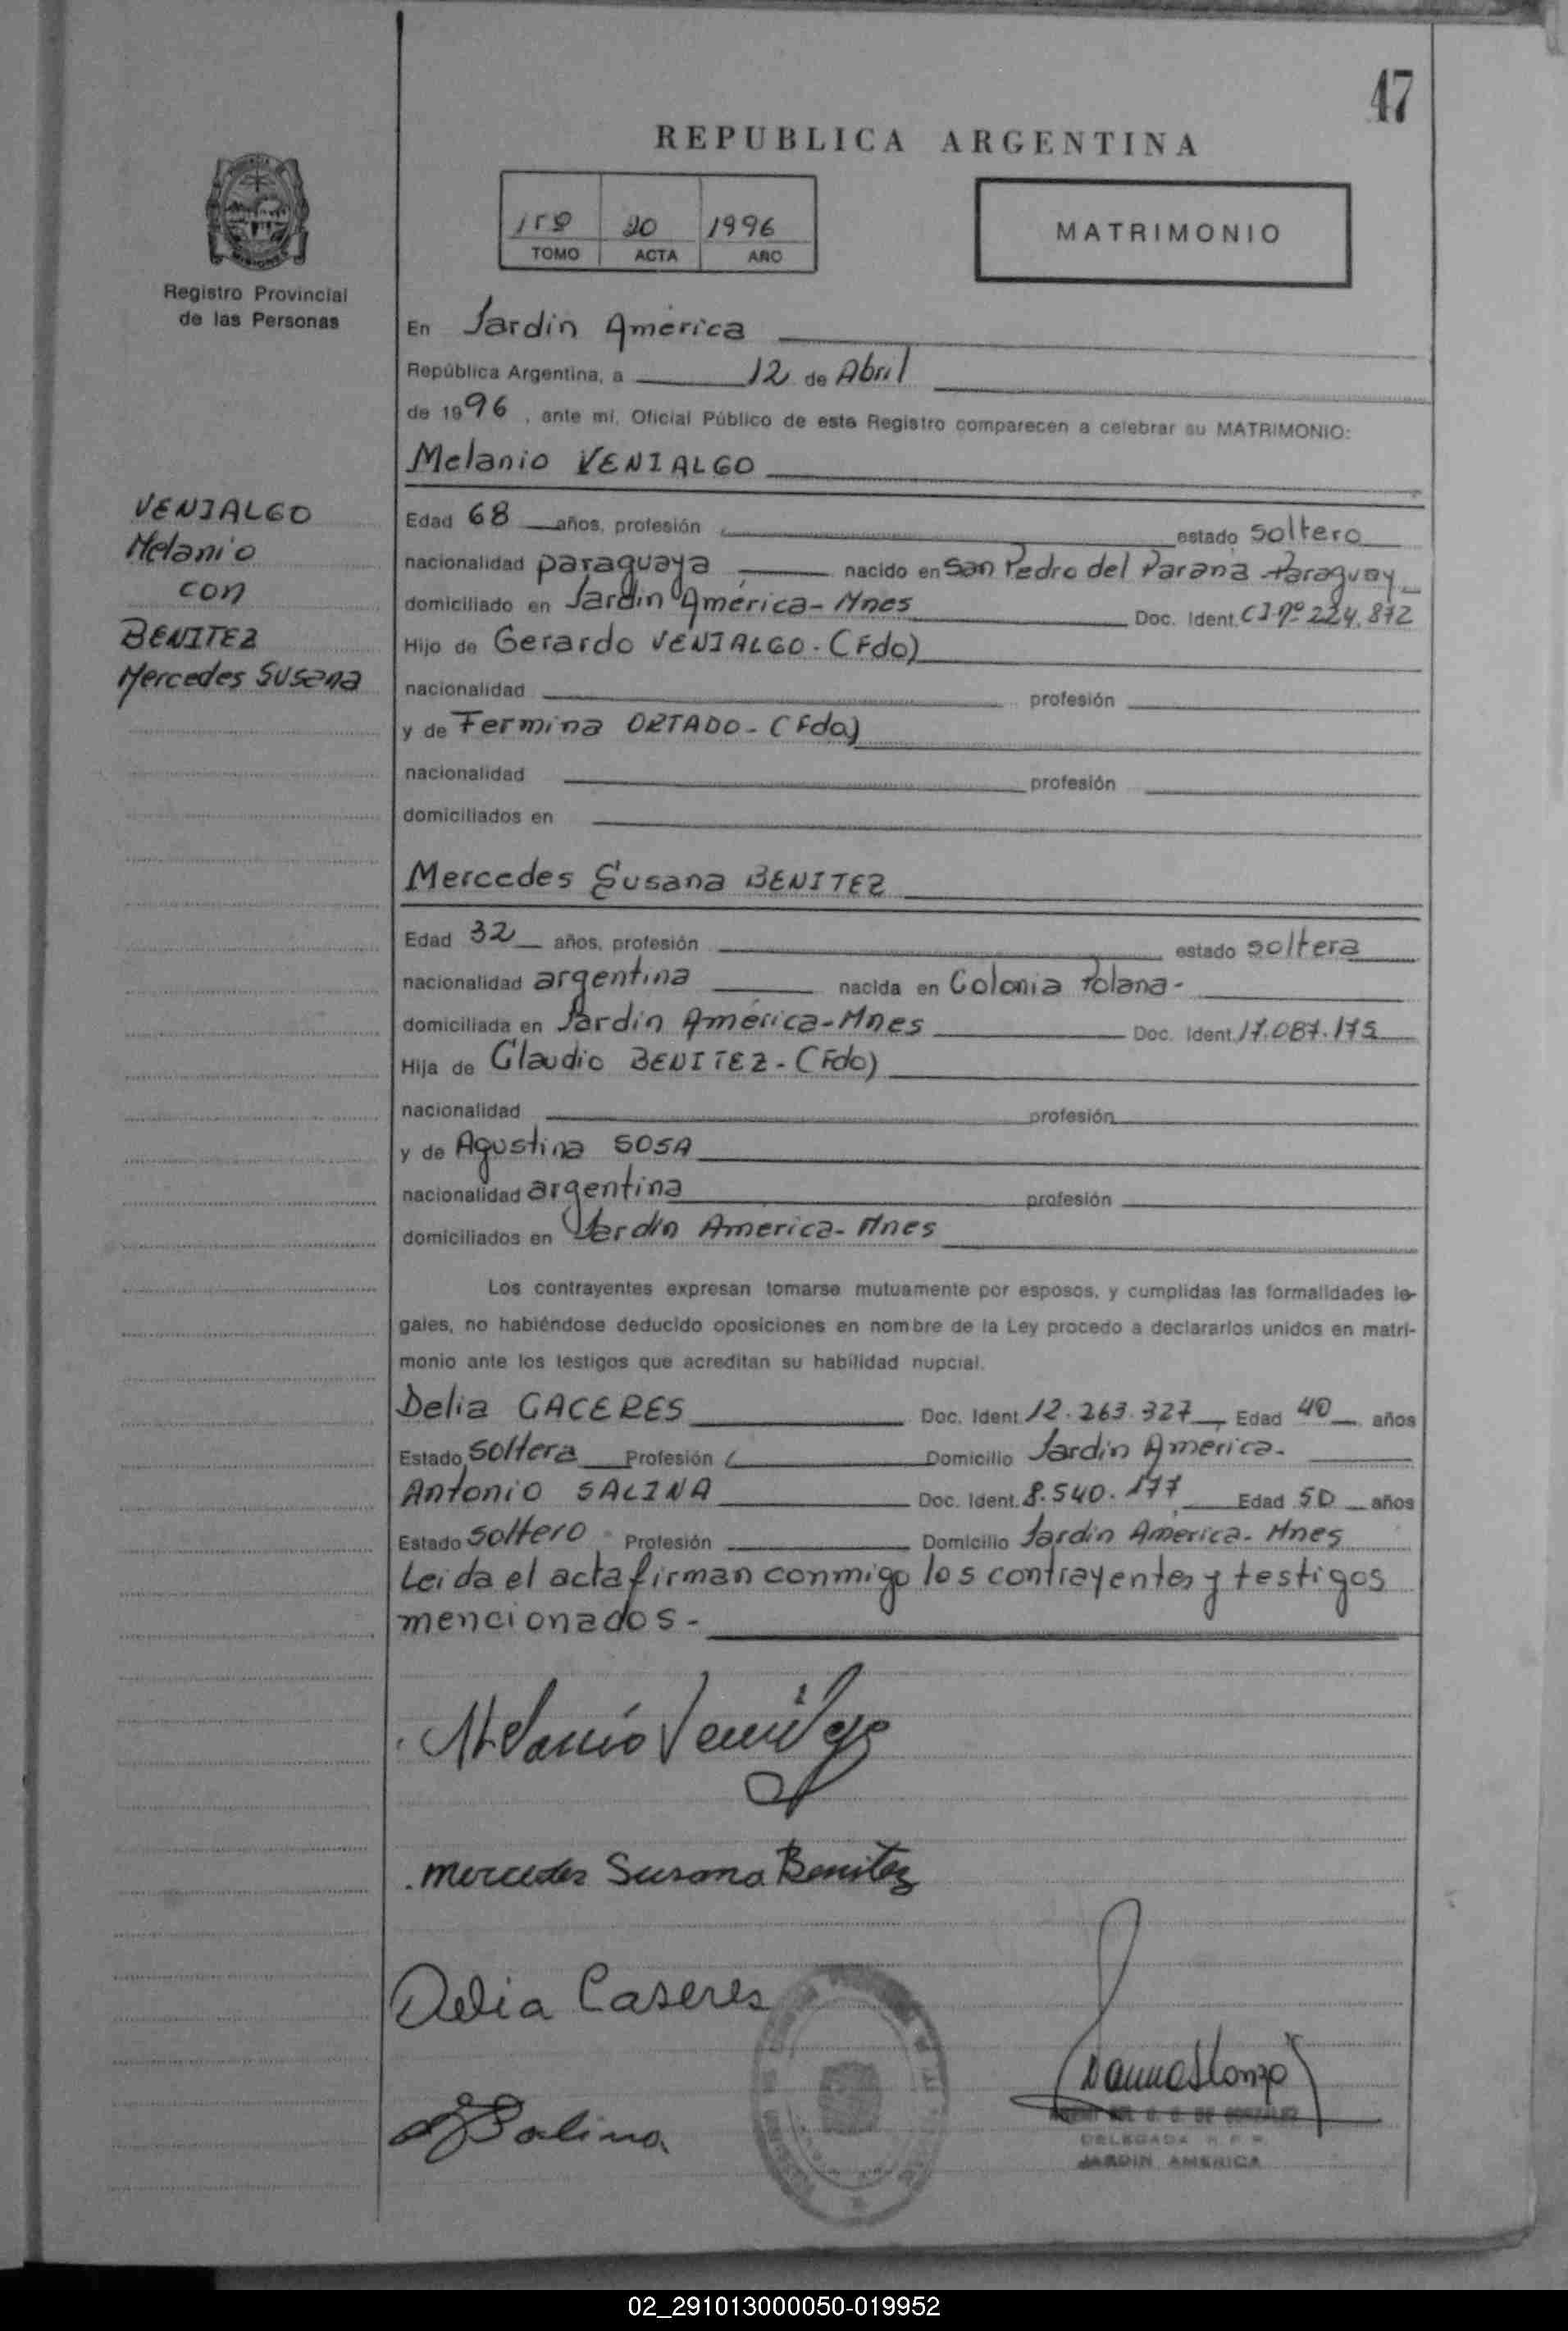 47
REPUBLICA ARGENTINA
20 1996
TOMO ACTA AÑO
MATRIMONIO
Registro Provincial
de las Personas
VENIALGO
Melanio
con
BENITEZ
Mercedes Susana
En Jardín América
República Argentina, a 12 de Abril
de 1996, ante mí, Oficial Público de este Registro comparecen a celebrar su MATRIMONIO:
Melanio VENIALGO
Edad 68 años, profesión estado soltero
nacionalidad paraguaya nacido en San Pedro del Paraná-Paraguay
domiciliado en Jardín América-Mnes Doc. Ident. CI nº 224.872
Hijo de Gerardo VENIALGO.(Fdo)
nacionalidad profesión
y de Fermina ORTADO-(Fda)
nacionalidad profesión
domiciliados en
Mercedes Susana BENITEZ
Edad 32 años, profesión estado soltera
nacionalidad argentina nacida en Colonia Polana-
domiciliada en Jardín América-Mnes Doc. Ident. 17.087.175
Hija de Claudio BENITEZ-(Fdo)
nacionalidad profesión
y de Agustina SOSA
nacionalidad argentina profesión
domiciliados en Jardín America-Mnes
Los contrayentes expresan tomarse mutuamente por esposos, y cumplidas las formalidades le-
gales, no habiéndose deducido oposiciones en nombre de la Ley procedo a declararlos unidos en matri-
monio ante los testigos que acreditan su habilidad nupcial.
Delia CACERES Doc. Ident. 12.263.327 Edad 40 años
Estado soltera Profesión Domicilio Jardín América-
Antonio SALINA Doc. Ident. 8.540.177 Edad 50 años
Estado soltero Profesión Domicilio Jardín América-Mnes
Leída el acta firman conmigo los contrayentes y testigos
mencionados-
Melanio Venialgo
Mercedes Susana Benitez
Delia Caseres
Salina
DE GONZALEZ
DELEGADA R. P. P.
JARDIN AMERICA
02_291013000050-019952